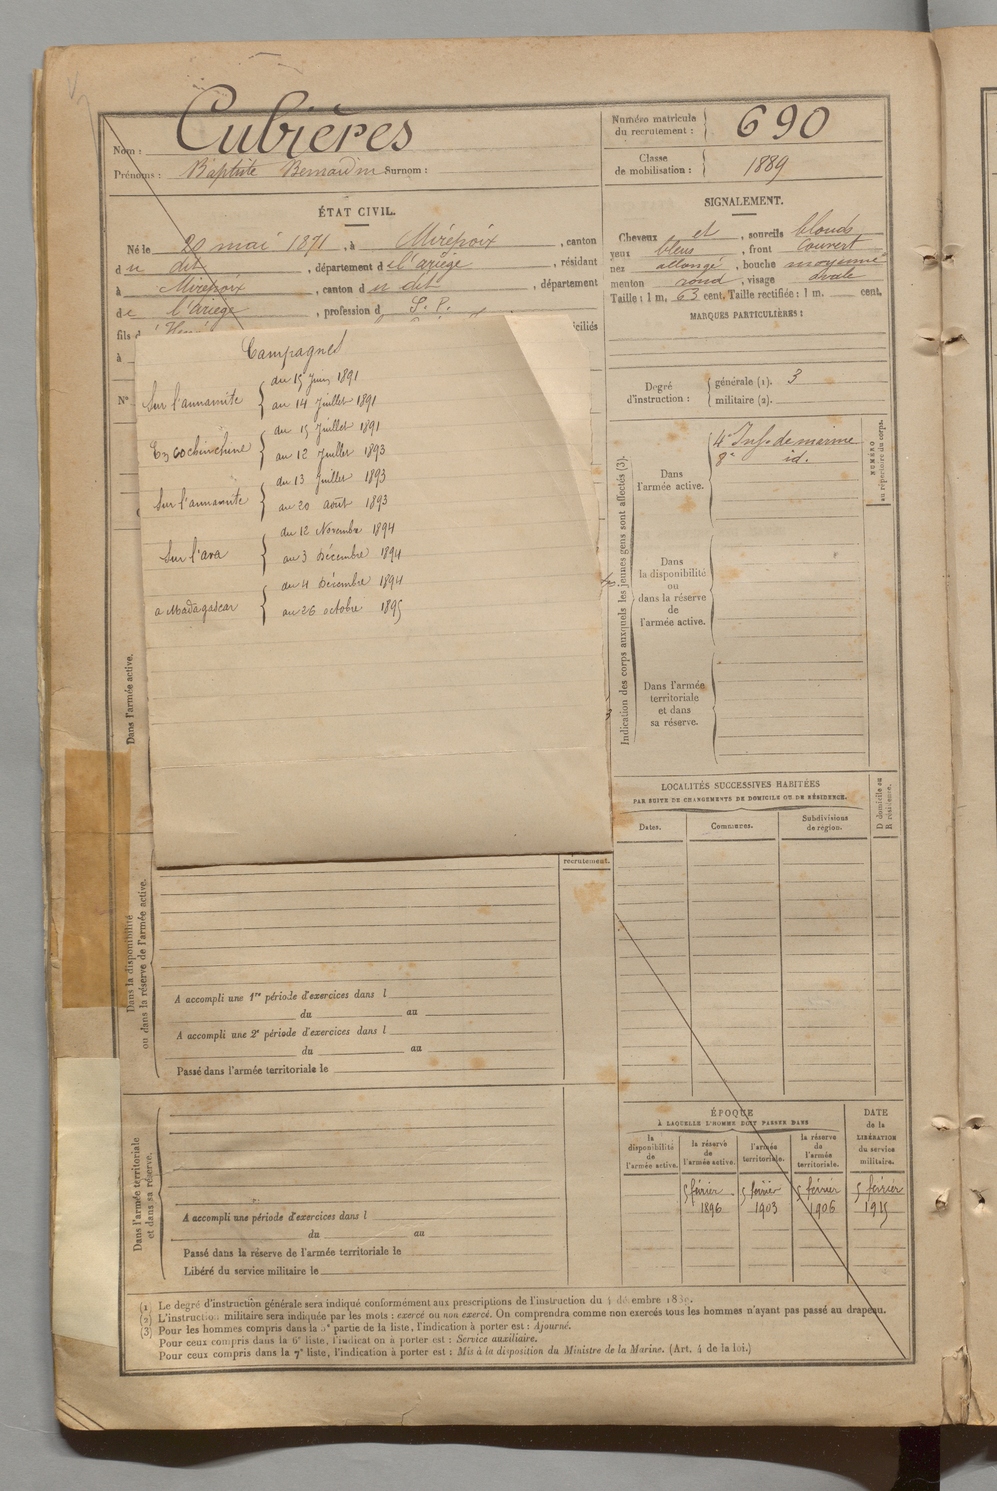 Nom : Cubières
Prénoms : Baptiste Bernardin Surnom :
Numéro matricule
du recrutement : 690
Classe
de mobilisation : 1889
ÉTAT CIVIL.
Né le 20 mai 1871, à Mirepoix, canton
du dit, département de l'ariège, résidant
à Mirepoix, canton du dit, département
de l'ariège, profession d S. P.
fils d
à
N°
SIGNALEMENT.
Cheveux et, sourcils blonds
yeux bleus, front couvert
nez allongé, bouche moyenne
menton rond, visage ovale
Taille : 1 m. 63 cent. Taille rectifiée : 1 m. cent.
MARQUES PARTICULIÈRES :
Degré
d'instruction :
générale (1). 3
militaire (2).
Campagnes
Sur l'annamite
du 15 Juin 1891
au 14 Juillet 1891
En Cochinchine
du 15 Juillet 1891
au 12 Juillet 1893
Sur l'annamite
du 13 Juillet 1893
au 20 août 1893
Sur l'ava
du 12 Novembre 1894
au 3 Décembre 1894
a Madagascar
du 4 Décembre 1894
au 26 octobre 1895
Indication des corps auxquels les jeunes gens sont affectés (3).
Dans
l'armée active.
4e Inf. de marine
8e id.
NUMÉRO
au répertoire du corps.
Dans
la disponibilité
ou
dans la réserve
de
l'armée active.
Dans l'armée
territoriale
et dans
sa réserve.
LOCALITÉS SUCCESSIVES HABITÉES
PAR SUITE DE CHANGEMENTS DE DOMICILE OU DE RÉSIDENCE.
Dates.
Communes.
Subdivisions
de région.
D domicile ou
R résidence.
Dans l'armée active.
recrutement.
Dans la disponibilité
ou dans la réserve de l'armée active.
A accompli une 1re période d'exercices dans l
du au
A accompli une 2e période d'exercices dans l
du au
Passé dans l'armée territoriale le
Dans l'armée territoriale
et dans sa réserve.
A accompli une période d'exercices dans l
du au
Passé dans la réserve de l'armée territoriale le
Libéré du service militaire le
ÉPOQUE
À LAQUELLE L'HOMME DOIT PASSER DANS
la
disponibilité
de
l'armée active.
la réserve
de
l'armée active.
l'armée
territoriale.
la réserve
de
l'armée
territoriale.
DATE
de la
LIBÉRATION
du service
militaire.
5 février 5 février 5 février 5 février
1896 1903 1906 1915
(1) Le degré d'instruction générale sera indiqué conformément aux prescriptions de l'instruction du 4 décembre
(2) L'instruction militaire sera indiquée par les mots : exercé ou non exercé. On comprendra comme non exercés tous les hommes n'ayant pas passé au drapeau.
(3) Pour les hommes compris dans la partie de la liste, l'indication à porter est : Ajourné.
Pour ceux compris dans la 6e liste, l'indication à porter est : Service auxiliaire.
Pour ceux compris dans la 7e liste, l'indication à porter est : Mis à la disposition du Ministre de la Marine. (Art. 4 de la loi.)